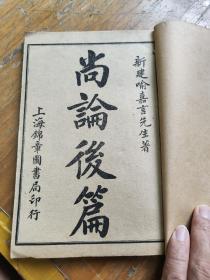 新建喻嘉言先生著
尚論後篇
上海錦章圖書局印行